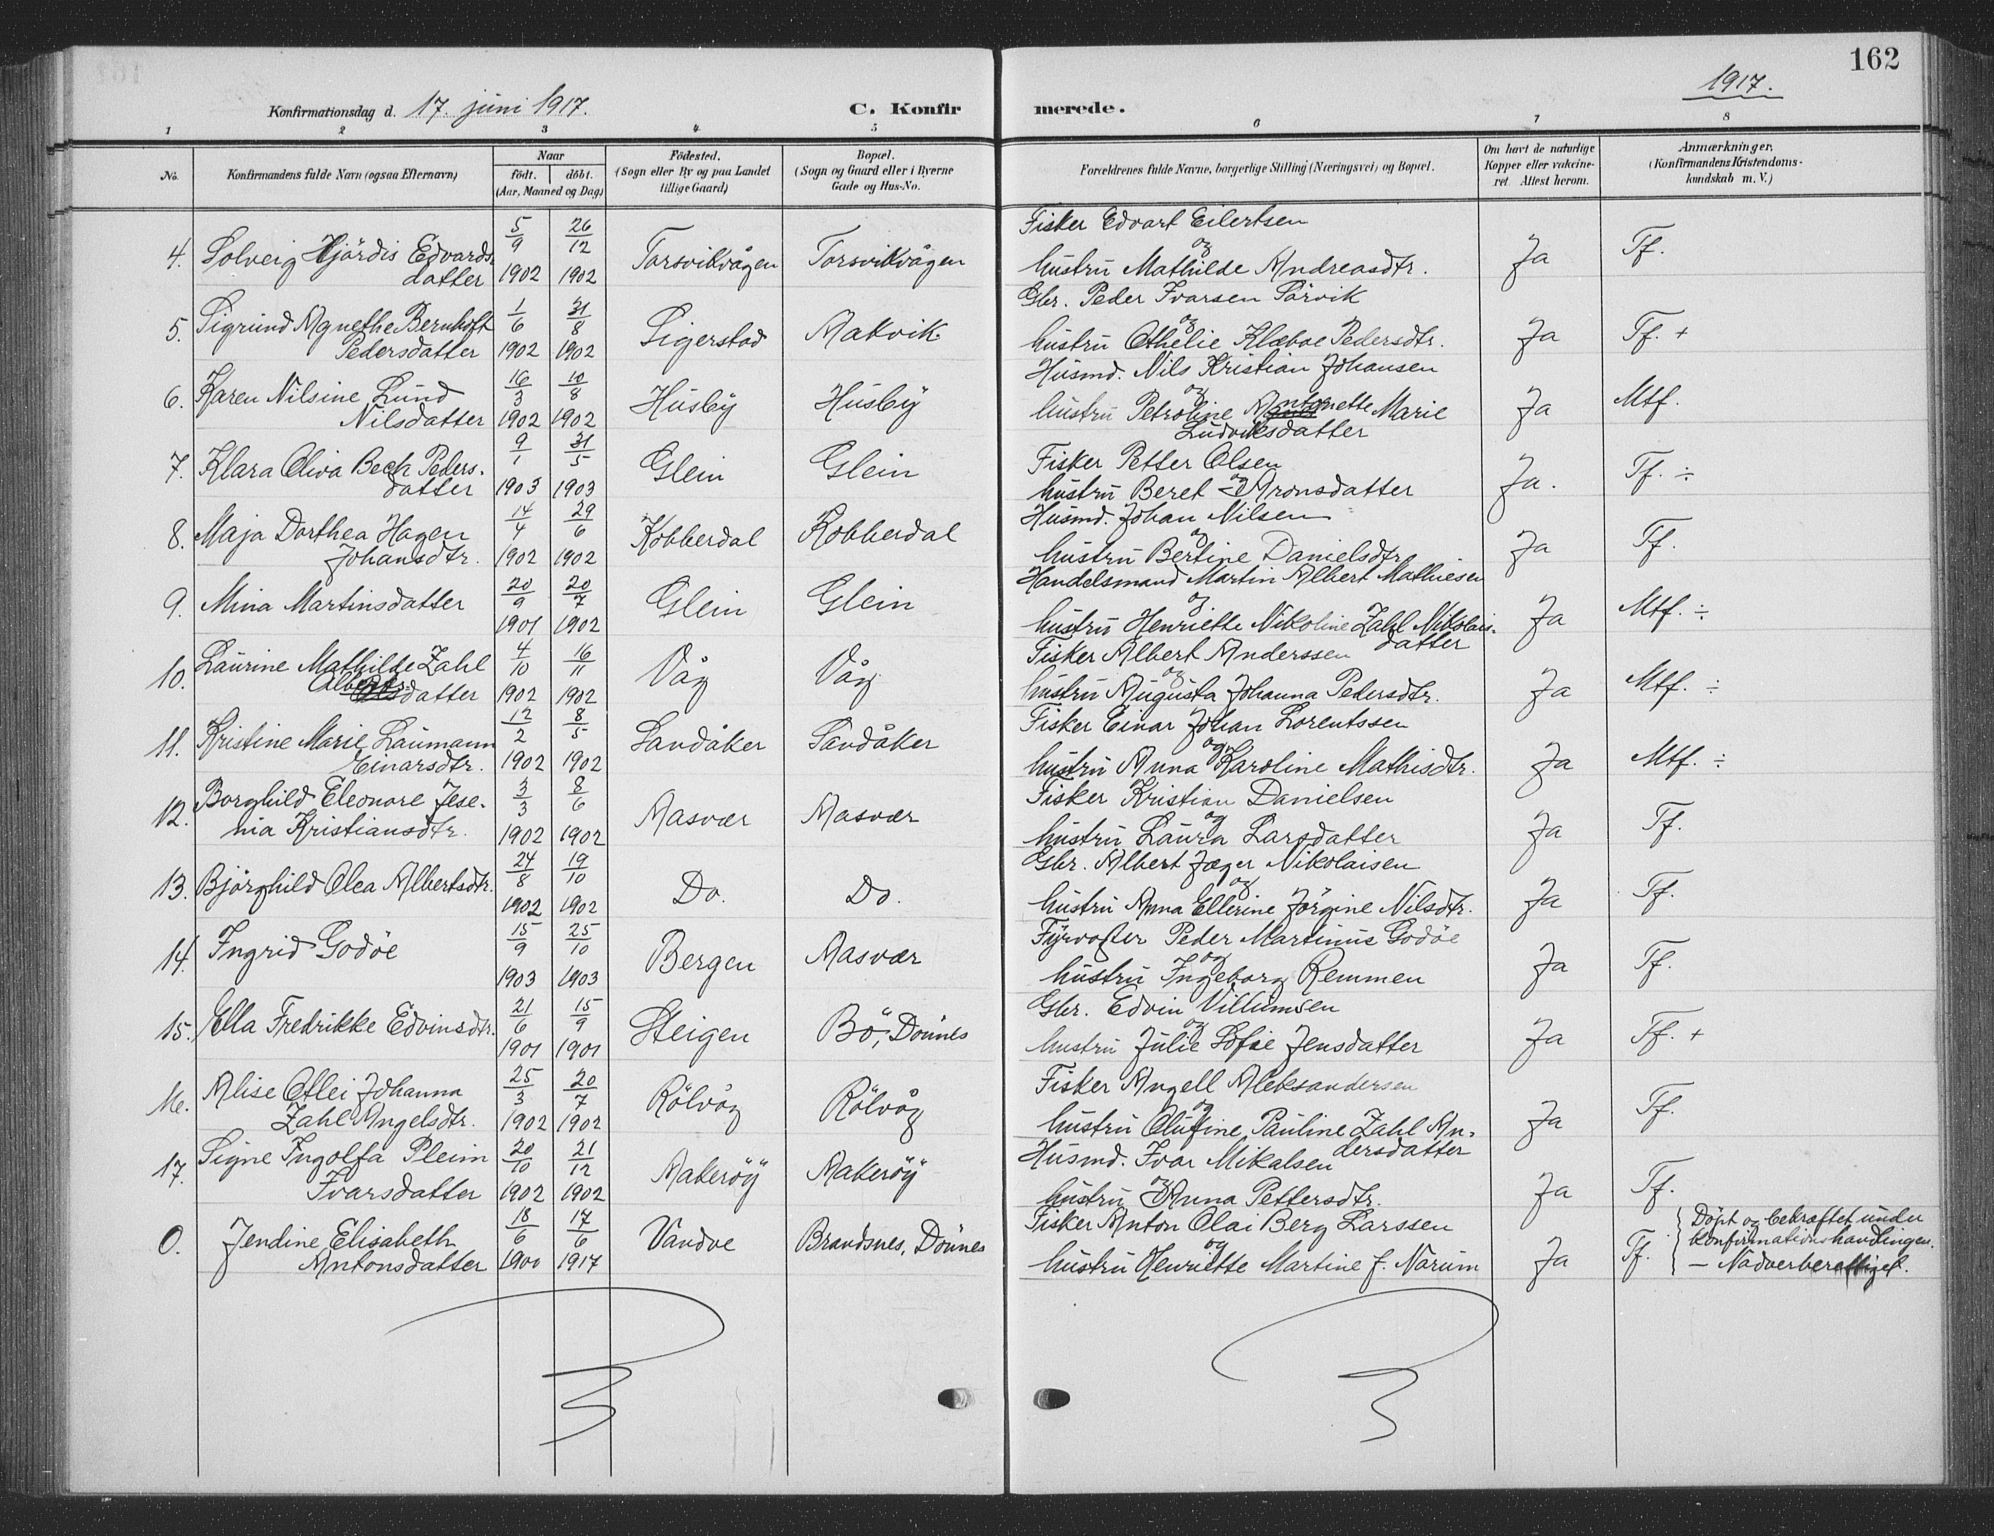 162
1917.
Konfirmationsdag d. 17. juni 1917.
C. Konfirmerede.
1 2 3 4 5 6 7 8
No. Konfirmandens fulde Navn (ogsaa Efternavn) Naar født. døbt. (Aar, Maaned og Dag) Fødested. (Sogn eller By og paa Landet tillige Gaard) Bopæl. (Sogn og Gaard eller i Byerne Gade og Hus-No. Forældrenes fulde Navne, borgerlige Stilling (Næringsvei) og Bopæl. Om havt de naturlige Kopper eller vakcineret. Attest herom. Anmærkninger. (Konfirmandens Kristendomskundskab m. V.)
4. Solveig Hjördis Edvardsdatter 5/9 1902 26/12 1902 Torsvikvågen Torsvikvågen Fisker Edvart Eilertsen og hustru Mathilde Andreasdtr. Ja Tf.
5. Sigrund Agnethe Bernhoft Pedersdatter 1/6 1902 31/8 1902 Sigerstad Makvik Gbr. Peder Ivarsen Pårvik og hustru Othelie Klæboe Pedersdtr. Ja Tf. +
6. Karen Nilsine Lund Nilsdatter 16/3 1902 10/8 1902 Husby Husby Husmd. Nils Kristian Johansen og hustru Petroline Antonette Marie Ludviksdatter Ja Mtf.
7. Klara Oliva Bech Pedersdatter 9/1 1903 31/5 1903 Glein Glein Fisker Petter Olsen og hustru Beret Aronsdatter Ja. Tf. ÷
8. Maja Dorthea Hagen Johansdtr. 14/4 1902 29/6 1902 Kobberdal Kobberdal Husmd. Johan Nilsen og hustru Bertine Danielsdtr. Ja Tf.
9. Mina Martinsdatter 20/9 1901 20/7 1902 Glein Glein Handelsmand Martin Albert Mathiesen og hustru Henriette Nikoline Zahl Nikolaisdatter Ja Mtf. ÷
10. Laurine Mathilde Zahl Albertsdatter 4/10 1902 16/11 1902 Våg Våg Fisker Albert Anderssen og hustru Augusta Johanna Pedersdtr. Ja Mtf. ÷
11. Kristine Marie Laumann Einarsdtr. 12/2 1902 8/5 1902 Sandåker Sandåker Fisker Einar Johan Lorentssen og hustru Anna Karoline Mathisdtr. Ja Mtf. ÷
12. Borghild Eleonore Jesenia Kristiansdtr. 3/3 1902 8/6 1902 Aasvær Aasvær Fisker Kristian Danielsen og hustru Laura Larsdatter Ja Tf.
13. Bjørghild Olea Albertsdtr. 24/8 1902 19/10 1902 Do. Do. Gbr. Albert Jæger Nikolaisen og hustru Anna Ellerine Jörgine Nilsdtr. Ja Tf.
14. Ingrid Godöe 15/9 1903 25/10 1903 Bergen Aasvær Fyrvogter Peder Martinus Godöe og hustru Ingeborg Remmen Ja Tf.
15. Ella Fredrikke Edvinsdtr. 21/6 1901 15/9 1901 Steigen Bö, Dönnes Gbr. Edvin Villumsen og hustru Julie Sofie Jensdatter Ja Tf. +
16. Alise Otlei Johanna Zahl Angelsdtr. 25/3 1902 20/7 1902 Rölvåg Rölvåg Fisker Angell Aleksandersen og hustru Olufine Pauline Zahl Andersdatter Ja Tf.
17. Signe Ingolfa Pleim Ivarsdatter 20/10 1902 21/12 1902 Aakeröy Aakeröy Husmd. Ivar Mikalsen og hustru Anna Pettersdtr. Ja Tf.
0. Jendine Elisabeth Antonsdatter 18/6 1900 17/6 1917 Vandve Brandsnes, Dönnes Fisker Anton Olai Berg Larssen og hustru Henriette Martine f. Norum Ja Tf. Döpt og bekræftet under konfirmationshandlingen. — Nadverberettiget.